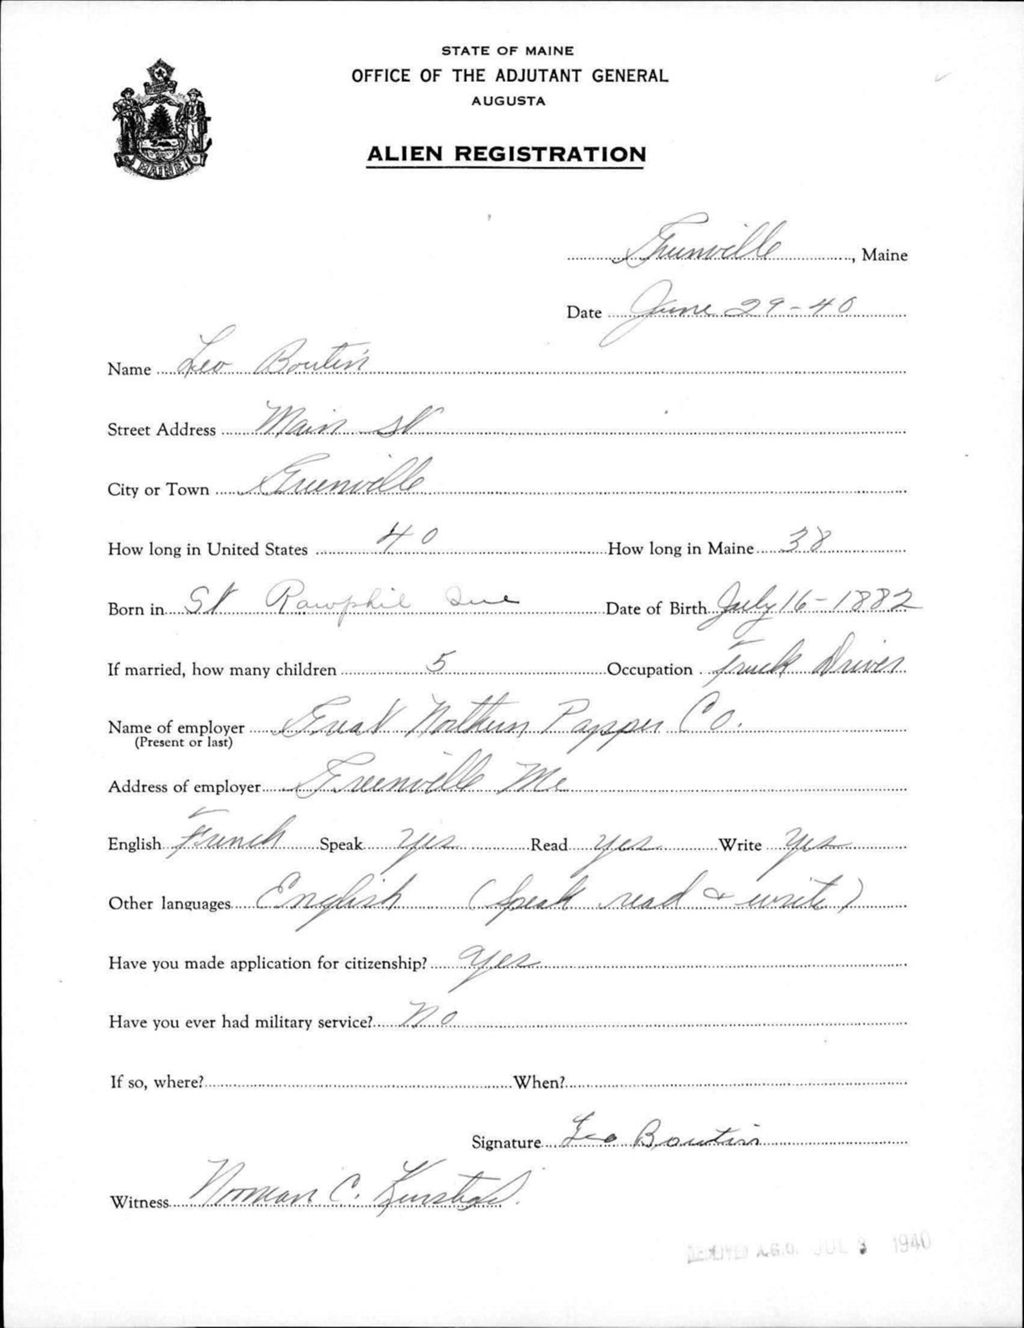 STATE OF MAINE
OFFICE OF THE ADJUTANT GENERAL
AUGUSTA
ALIEN REGISTRATION
MAINE
Greenville, Maine
Date June 29-40
Name Leo Boutin
Street Address Main St
City or Town Greenville
How long in United States 40 How long in Maine 38
Born in St Rawphil Que Date of Birth July 16-1882
If married, how many children 5 Occupation Truck Driver
Name of employer Great Northern Papper Co.
(Present or last)
Address of employer Greenville Me
English French Speak yes Read yes Write yes
Other languages English (Speak read & write)
Have you made application for citizenship? yes
Have you ever had military service? No
If so, where? When?
Signature Leo Boutin
Witness Norman C.
RECEIVED A.G.O. JUL 3 1940